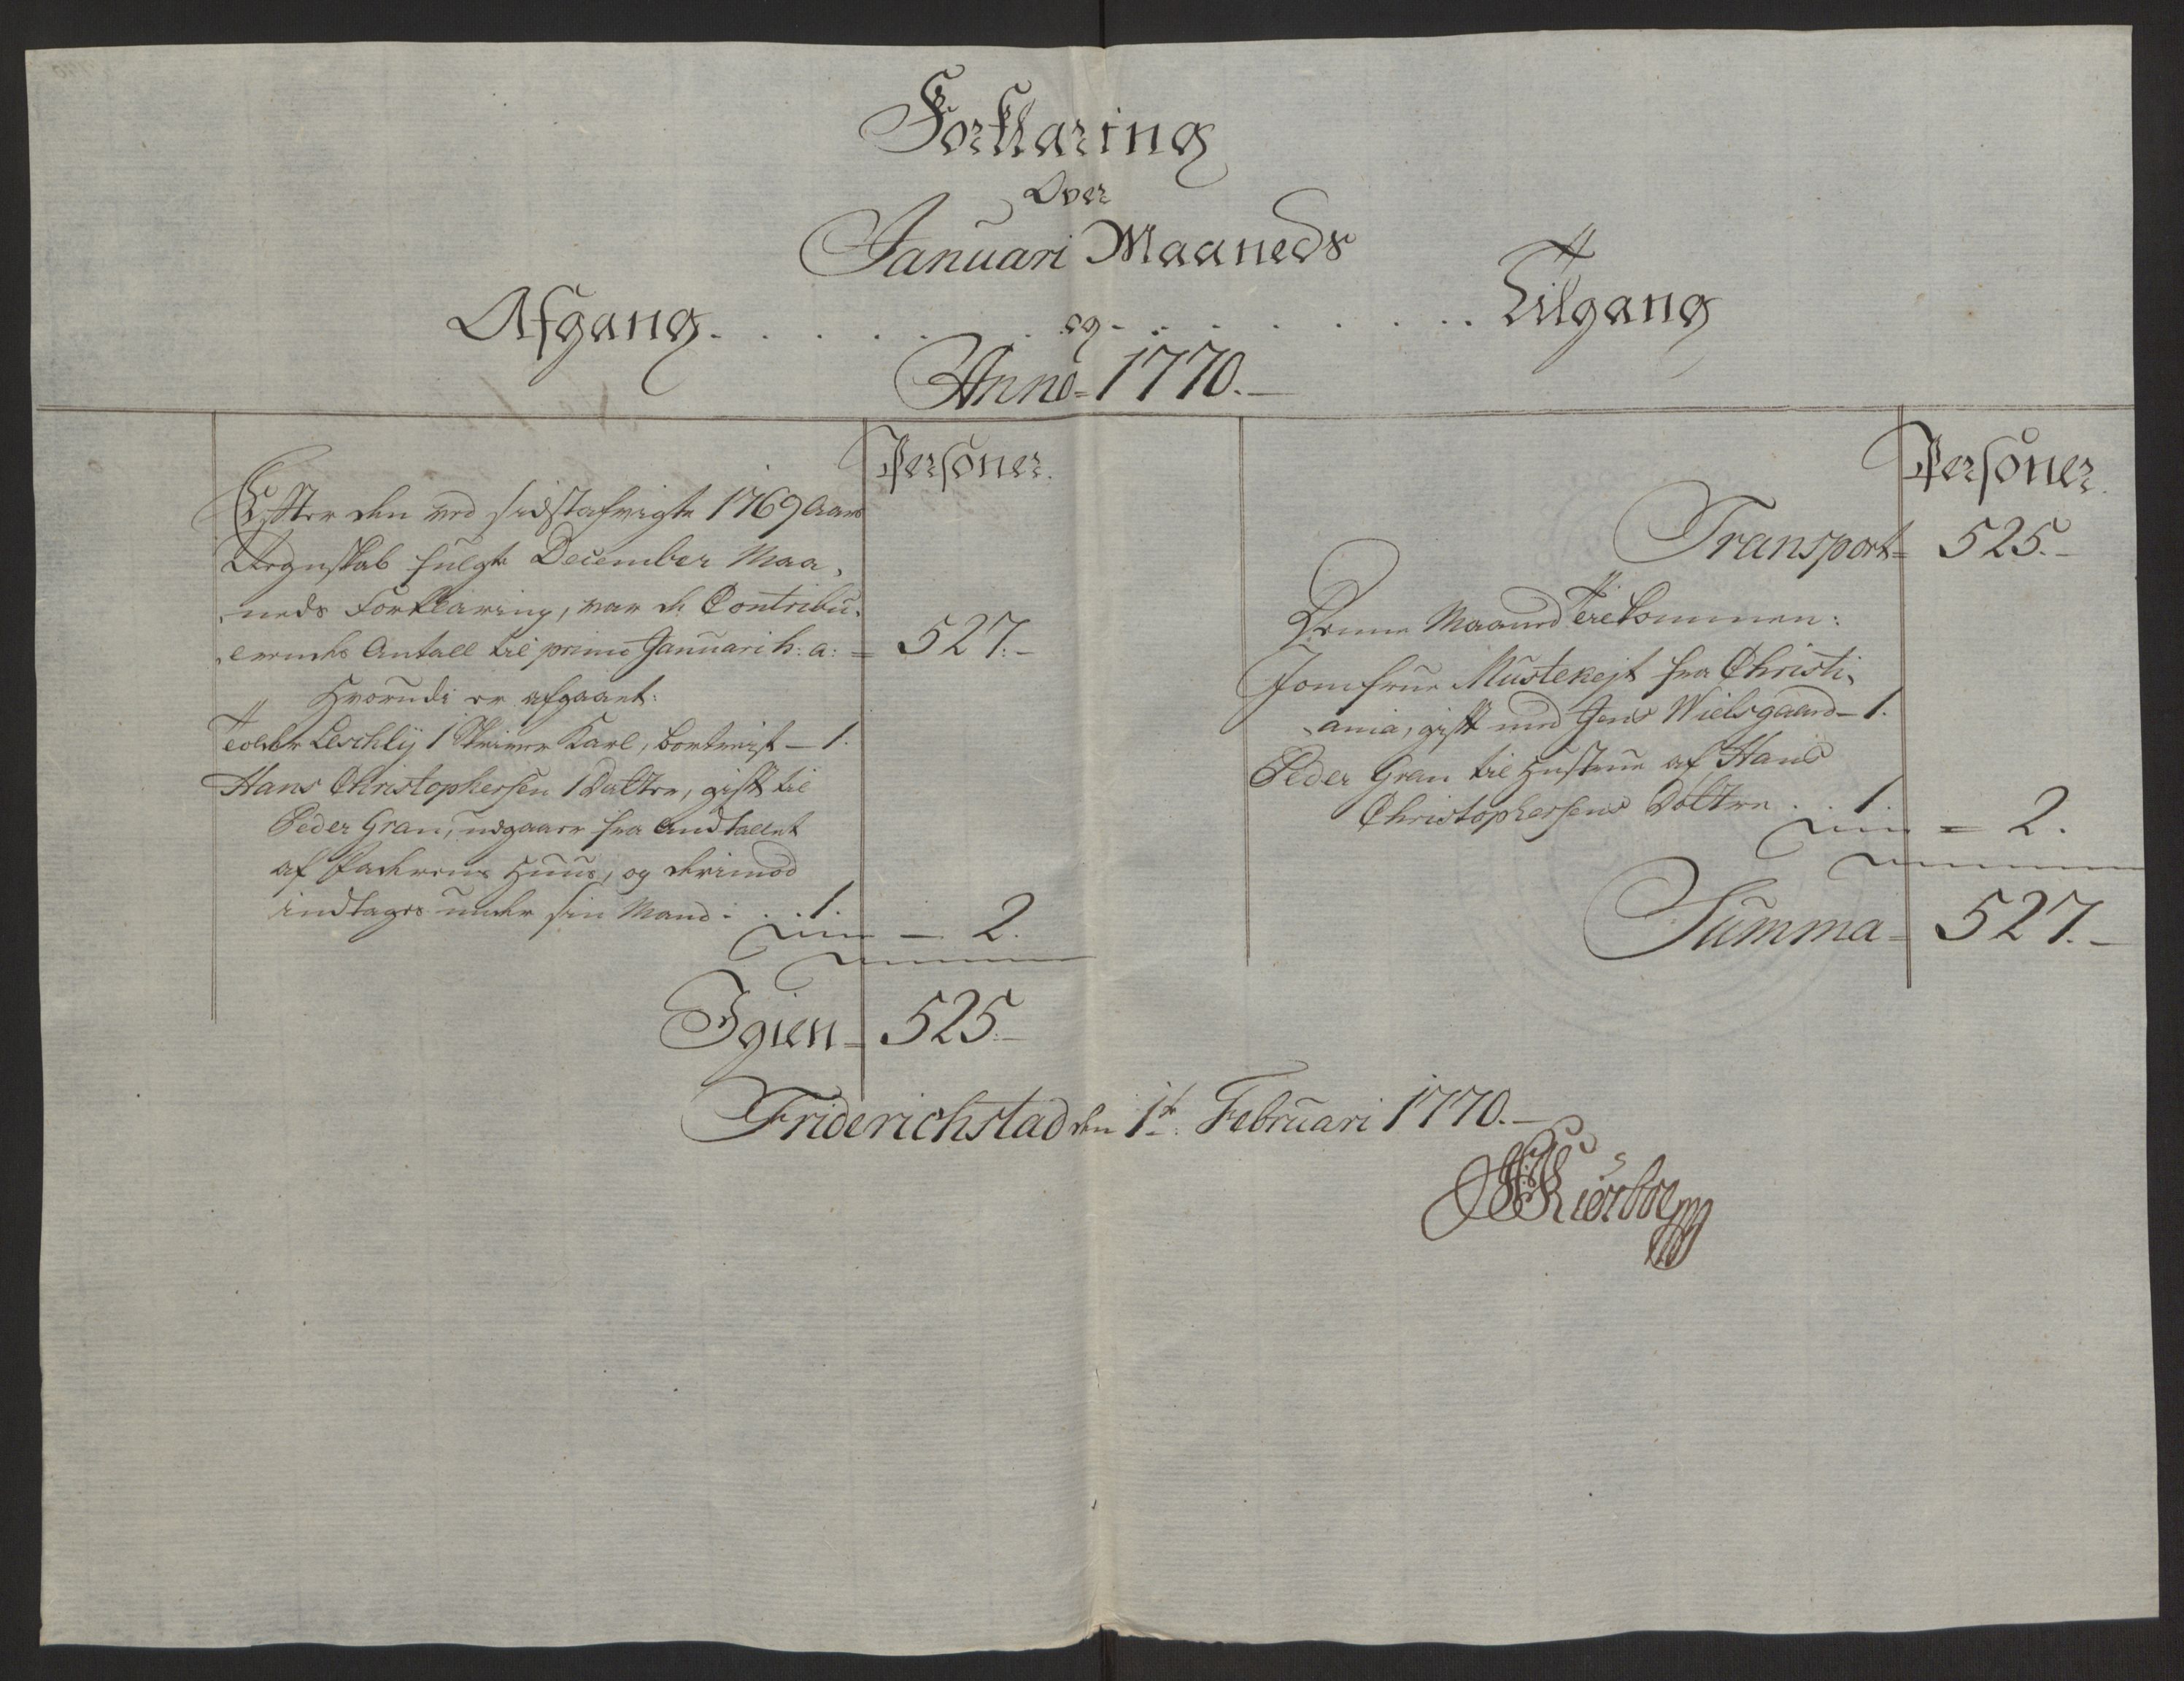 Forklaring
Over
Januari Maaneds
Afgang . . . . . . . og - . . . . . . . Tilgang
Anno 1770.
Personer.
Efter den ved sidstafvigte 1769 Aars
Regnskab fulgte December Maa-
neds Forklaring, var de Contribu-
erendes Antall til primo Januari h: a: = 527.-
Hvorudi er afgaaet:
Tolder Leschly 1 Skriver Karl, bortreist - 1.
Hans Christophersen 1 Datter, gift til
Peder Gran, udgaaer fra Andtallet
af Faderens Huus, og derimod
indtages under sin Mand . . 1.
- 2.
Igien = 525.-
Personer.
Transport = 525.-
Denne Maaned Tilkommen:
Jomfrue Mustekejt fra Christi-
ania, gift med Jens Wielsgaard - 1.
Peder Gran til Hustrue af Hans
Christophersens Dotter . . 1.
= 2.
Summa = 527.-
Friderichstad den 1t. Februari 1770.-